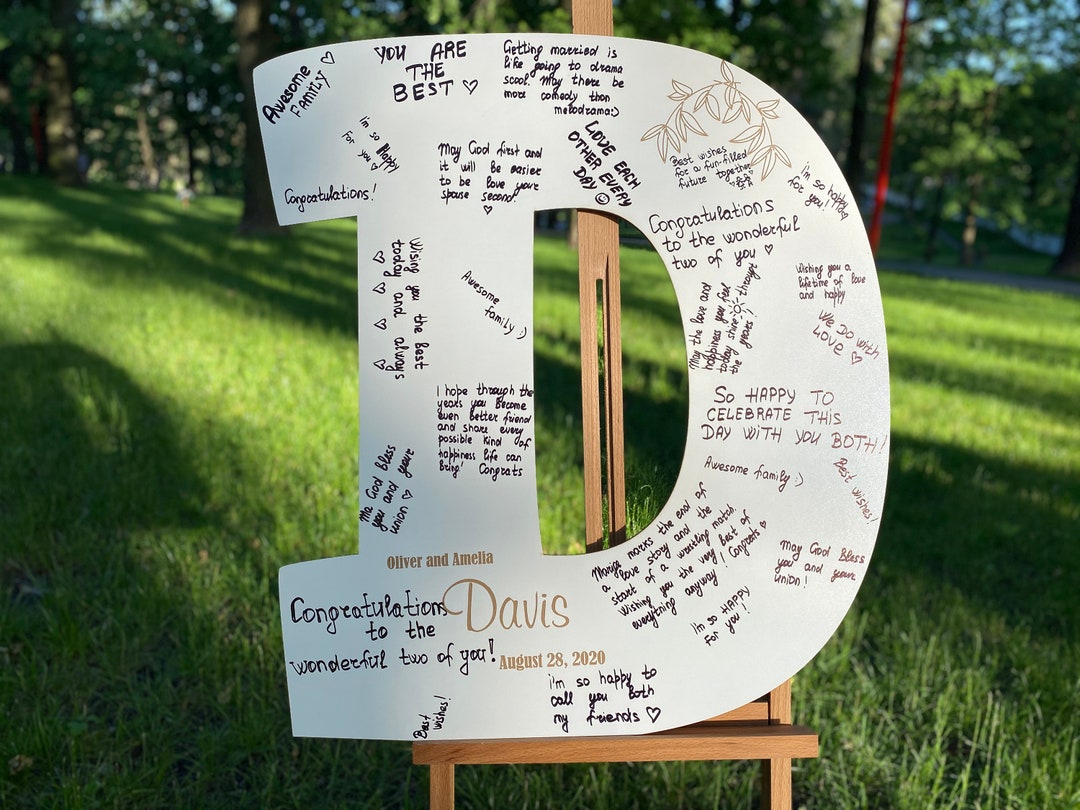 Awesome
FAMILY ♡
YOU ARE
THE
BEST ♡
Getting married is
like going to drama
scool. May there be
more comedy than
melodrama:)
i'm so Happy
for you ♡
Congratulations!
May God first and
it will be easier
to be love your
spouse second.
♡
LOVE EACH
OTHER EVERY
DAY ☺
Best wishes
for a fun-filled
future together
i'm so happy
for you!
Congratulations
to the wonderful
two of you ♡
Wising you the best
today and always
♡ ♡ ♡ ♡
Awesome
family :)
May the love and
happiness you feel
today shine through
the years!
Wishing you a
lifetime of love
and happy
We Do with
LOVE ♡
I hope through the
years you become
even better friend
and share every
possible kind of
happiness life can
bring! Congrats
SO HAPPY TO
CELEBRATE THIS
DAY WITH YOU BOTH!
Awesome family :)
Best wishes!
Me God Bless
you and youre
union ♡
Marige marks the end of
a love story and the
start of a wrestling match.
Wishing you the very best of
everything anyway! Congrats ♡
May God Bless
you and youre
union!
i'm so HAPPY
for you!
Oliver and Amelia
Davis
August 28, 2020
Congratulations
to the
wonderful two of you!
Best
wishes!
i'm so happy to
call you both
my friends ♡